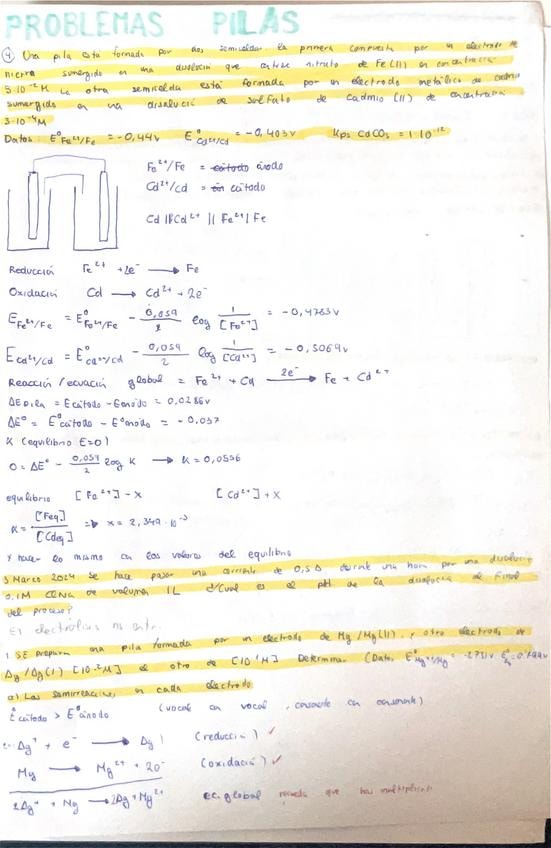 PROBLEMAS PILAS
4 Una pila esta formada por dos semiceldas. la primera compuesta por un electrodo de
hierro sumergido en una disolución que contiene nitrato de Fe(II) en concentración
5·10⁻² M La otra semicelda está formada por un electrodo metálico de cadmio
sumergido en una disolución de sulfato de cadmio (II) de concentración
3·10⁻⁴M
Datos: E°Fe²⁺/Fe = -0,44V E°Cd²⁺/Cd = -0,403V Kps CdCO₃ = 1·10⁻¹²
Fe²⁺/Fe = cátodo ánodo
Cd²⁺/Cd = cátodo
Cd||Cd²⁺ || Fe²⁺| Fe
Reducción Fe²⁺ + 2e⁻ → Fe
Oxidación Cd → Cd²⁺ + 2e⁻
E Fe²⁺/Fe = E°Fe²⁺/Fe - 0,059/2 log 1/[Fe²⁺] = -0,4783V
E Cd²⁺/Cd = E°Cd²⁺/Cd - 0,059/2 log 1/[Cd²⁺] = -0,5069V
Reacción /ecuación global = Fe²⁺ + Cd 2e⁻→ Fe + Cd²⁺
ΔE pila = E cátodo - E ánodo = 0,0286V
ΔE° = E°cátodo - E°ánodo = -0,037
K (equilibrio E=0)
0 = ΔE° - 0,059/2 log K → K = 0,0556
equilibrio [Fe²⁺] - x [Cd²⁺] + x
K = [Feq]/[Cdeq] => x = 2,349·10⁻³
y hacer lo mismo con los valores del equilibrio
3 Marzo 2024 se hace pasar una corriente de 0,5 A durante una hora por una disolución
0,1M de volumen 1L ¿Cual es el pH de la disolución al final
del proceso?
Electrólisis no entra.
1. SE prepara una pila formada por un electrodo de Mg/Mg(II), y otro electrodo de
Ag/Ag(I) [10⁻²M] el otro de [10⁻¹M] Determinar (Datos E°Mg²⁺/Mg =
a) Las semirreacciones en cada electrodo
E°cátodo > E°ánodo (vocal con vocal, consonante con consonante)
Ag⁺ + e⁻ → Ag (reducción) ✓
Mg → Mg²⁺ + 2e⁻ (oxidación) ✓
2Ag⁺ + Mg → 2Ag + Mg²⁺ ec. global recuerda que hay multiplicar